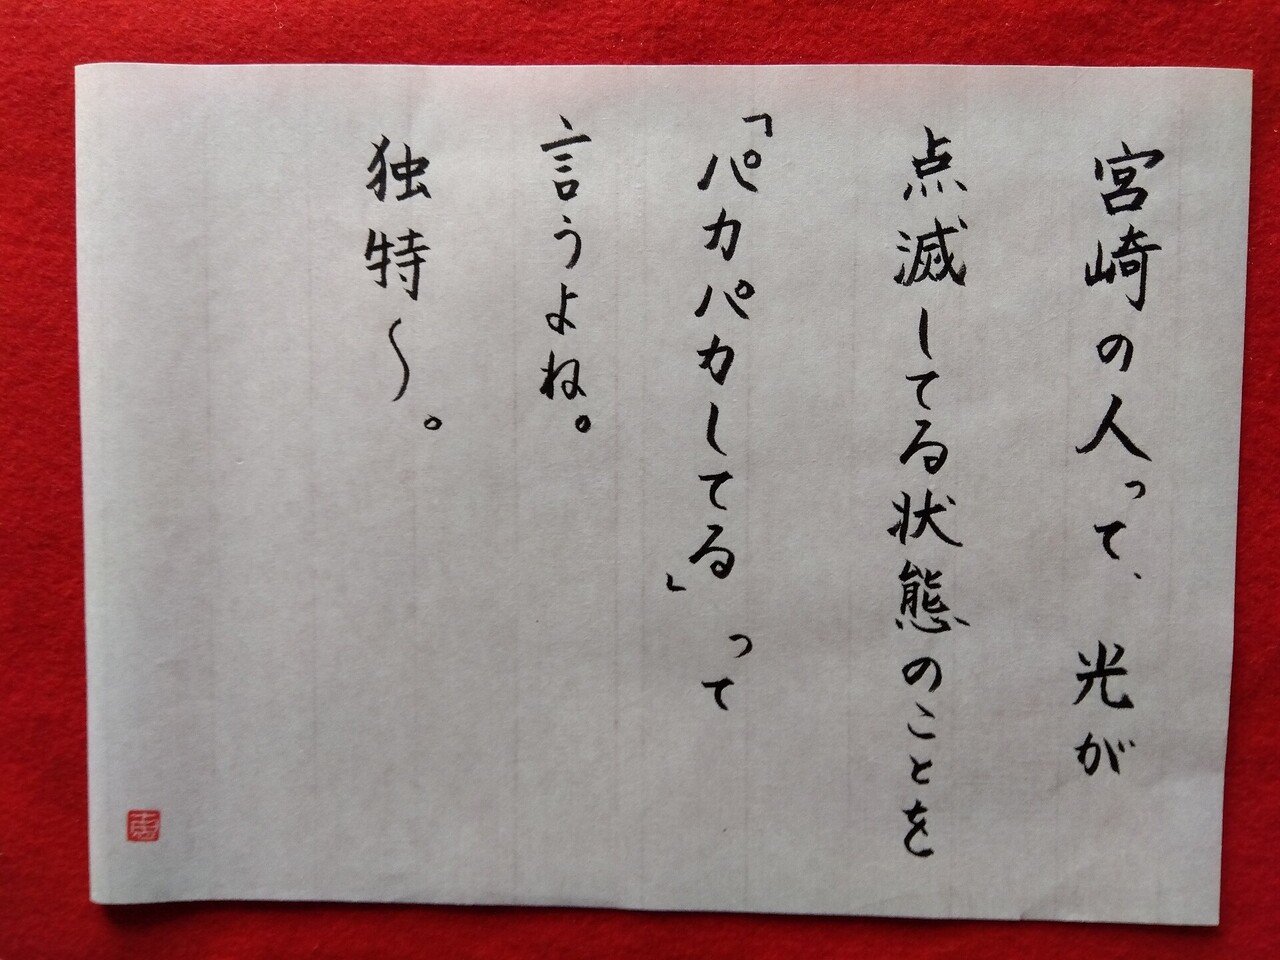 宮崎の人って、光が
点滅してる状態のことを
「パカパカしてる」って
言うよね。
独特〜。